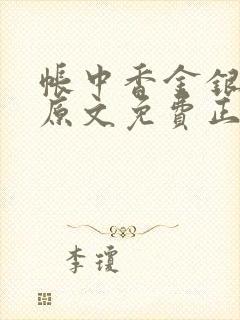 帳中香金銀
原文免費正
李瓊